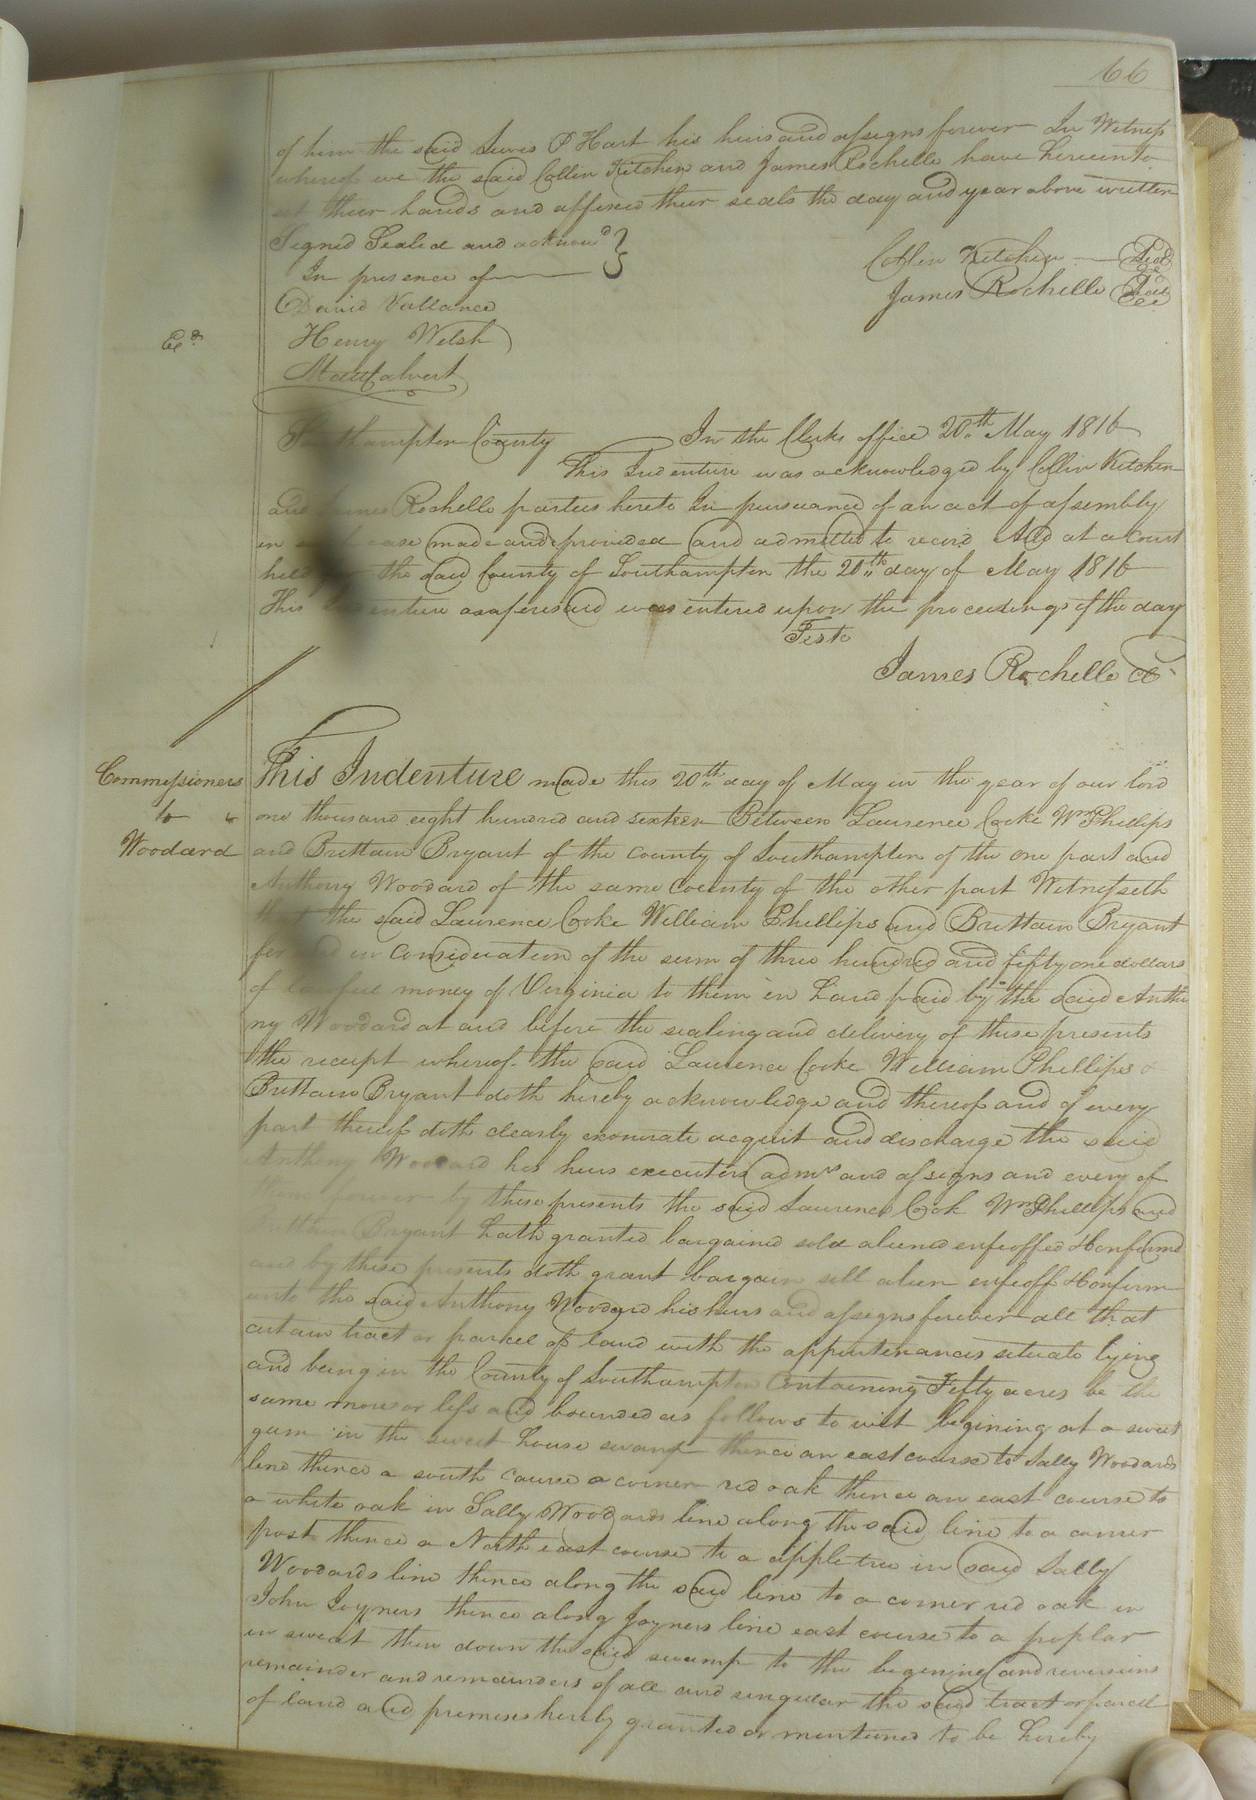 66
of him the said Lewis P Hart his heirs and assigns forever In Witness
whereof we the said Collin Kitchen and James Rochelle have hereunto
set their hands and affixed their seals the day and year above written
Signed Sealed and acknowd }
In presence of
Collin Kitchen Seal
James Rochelle Seal
David Vallance
Henry Welsh
Calvert
Exd
Southampton County In the Clerks office 20th May 1816
This Indenture was acknowledged by Collin Kitchen
and James Rochelle parties hereto In pursuance of an act of assembly
in case made and provided and admitted to record And at a Court
held for the said County of Southampton the 20th day of May 1816
This Indenture as aforesaid was entered upon the proceedings of the day
Teste
James Rochelle Cl
Commissioners
to
Woodard
This Indenture made this 20th day of May in the year of our lord
one thousand eight hundred and sixteen Between Laurence Cooke Wm Phillips
and Brittain Bryant of the county of Southampton of the one part and
Anthony Woodard of the same county of the other part Witnesseth
that the said Laurence Cooke William Phillips and Brittain Bryant
for and in consideration of the sum of three hundred and fifty one dollars
of lawfull money of Virginia to them in hand paid by the said Antho
ny Woodard at and before the sealing and delivery of these presents
the receipt whereof the said Laurence Cooke William Phillips &
Brittain Bryant doth hereby acknowledge and thereof and of every
part thereof doth clearly exonerate acquit and discharge the said
Anthony Woodard his heirs executors admrs and assigns and every of
them forever by these presents the said Laurence Cook Wm Phillips and
Brittain Bryant hath granted bargained sold aliend enfeoffed & Confirmd
and by these presents doth grant bargain sell alien enfeoff & Confirm
unto the said Anthony Woodard his heirs and assigns forever all that
certain tract or parcel of land with the appurtenances situate lying
and being in the County of Southampton Containing Fifty acres be the
same more or less and bounded as follows to wit begining at a sweet
gum in the sweet house swamp thence an east course to Sally Woodards
line thence a south course a corner red oak thence an east course to
a white oak in Sally Woodards line along the said line to a corner
post thence a North east course to a apple tree in said Sally
Woodards line thence along the said line to a corner red oak in
John Joyners thence along Joyners line east course to a poplar
in sweat then down the said swamp to the begining and reversions
remainder and remainders of all and singular the said tract or parcel
of land and premises hereby granted or mentioned to be hereby